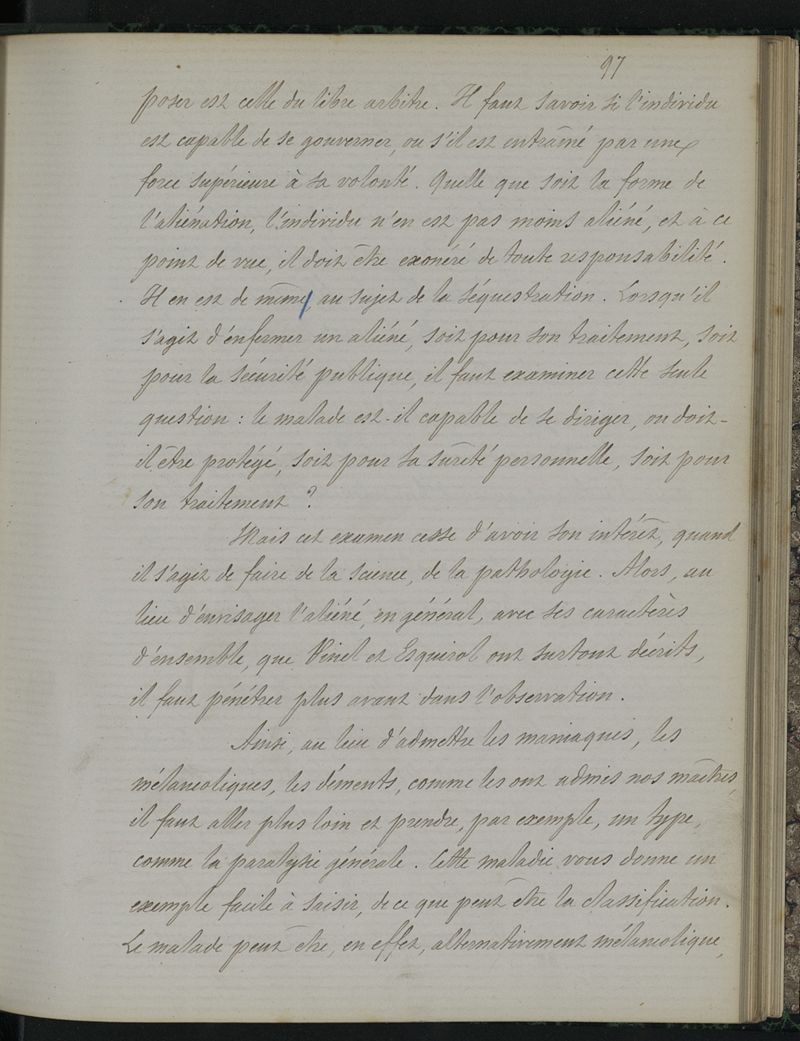 97
poser est celle du libre arbitre. Il faut savoir si l'individu
est capable de se gouverner, ou s'il est entraîné par une
force supérieure à sa volonté. Quelle que soit la forme de
l'aliénation, l'individu n'en est pas moins aliéné, et à ce
point de vue, il doit être exonéré de toute responsabilité.
Il en est de même, au sujet de la séquestration. Lorsqu'il
s'agit d'enfermer un aliéné, soit pour son traitement, soit
pour la sécurité publique, il faut examiner cette seule
question : le malade est-il capable de se diriger, ou doit-
il être protégé, soit pour sa sûreté personnelle, soit pour
son traitement ?
Mais cet examen cesse d'avoir son intérêt, quand
il s'agit de faire de la science, de la pathologie. Alors, au
lieu d'envisager l'aliéné, en général, avec ses caractères
d'ensemble, que Pinel et Esquirol ont surtout décrits,
il faut pénétrer plus avant dans l'observation.
Ainsi, au lieu d'admettre les maniaques, les
mélancoliques, les déments, comme les ont admis nos maîtres,
il faut aller plus loin et prendre, par exemple, un type,
comme la paralysie générale. Cette maladie vous donne un
exemple facile à saisir, de ce que peut être la classification.
Le malade peut être, en effet, alternativement mélancolique,